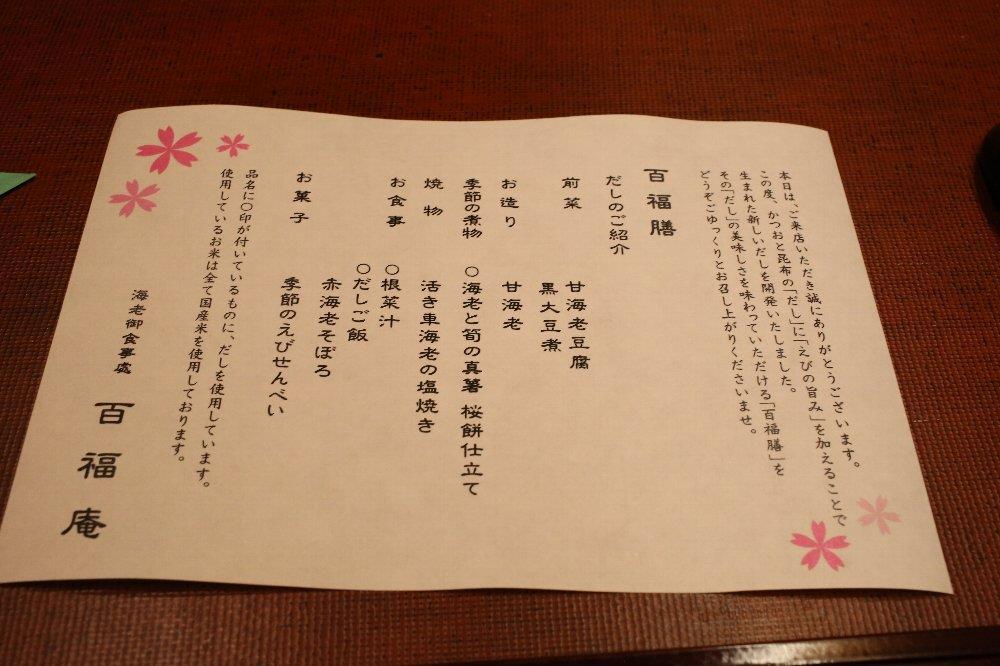 本日は、ご来店いただき誠にありがとうございます。
この度、かつおと昆布の「だし」に「えびの旨み」を加えることで
生まれた新しいだしを開発いたしました。
その「だし」の美味しさを味わっていただける「百福膳」を
どうぞごゆっくりとお召し上がりくださいませ。
百福膳
だしのご紹介
前菜 甘海老豆腐
黒大豆煮
お造り 甘海老
季節の煮物 〇海老と筍の真薯 桜餅仕立て
焼物 活き車海老の塩焼き
お食事 〇根菜汁
〇だしご飯
赤海老そぼろ
お菓子 季節のえびせんべい
品名に〇印が付いているものに、だしを使用しています。
使用しているお米は全て国産米を使用しております。
海老御食事處
百福庵